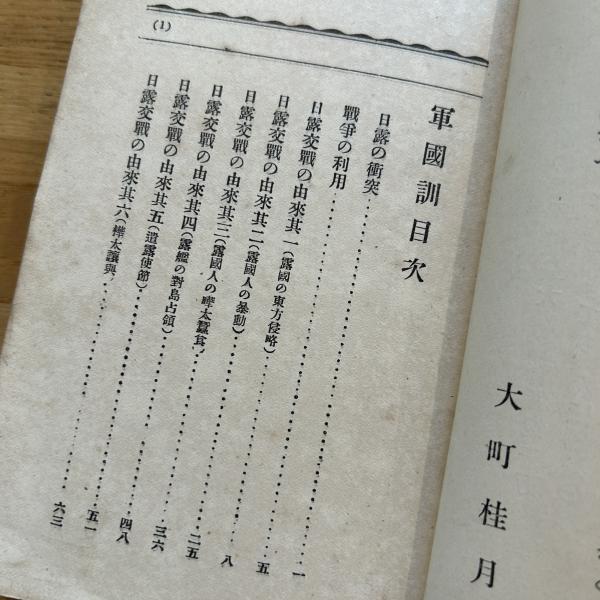 大町桂月
軍國訓目次
日露の衝突…………一
戰爭の利用…………五
日露交戰の由來其一(露國の東方侵略)…………八
日露交戰の由來其二(露國人の暴動)…………二五
日露交戰の由來其三(露國人の樺太蠶食)…………三六
日露交戰の由來其四(露艦の對島占領)…………四八
日露交戰の由來其五(遣露使節)…………五一
日露交戰の由來其六(樺太讓與)…………六三
(1)